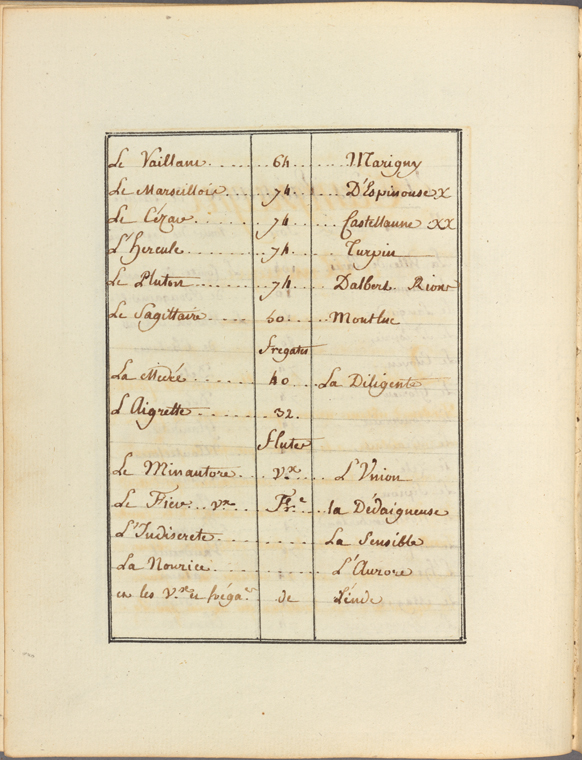 Le Vaillant........64........Marigny
Le Marseillois........74........D'Espinouse X
Le Cézar........74........Castellanne XX
L'Hercule........74........Turpin
Le Pluton........74........Dalbert Rions
Le Sagittaire........50........Montluc
fregates
La Medée........40........La Diligente
L'Aigrette........32.
flutes
Le Minautore........V.x........L'Union
Le Fier... V.x........F.e........la Dédaigneuse
L'Indiscrete........La Sensible
La Nourice........L'Aurore
en les V.x et fréga.es de L'inde